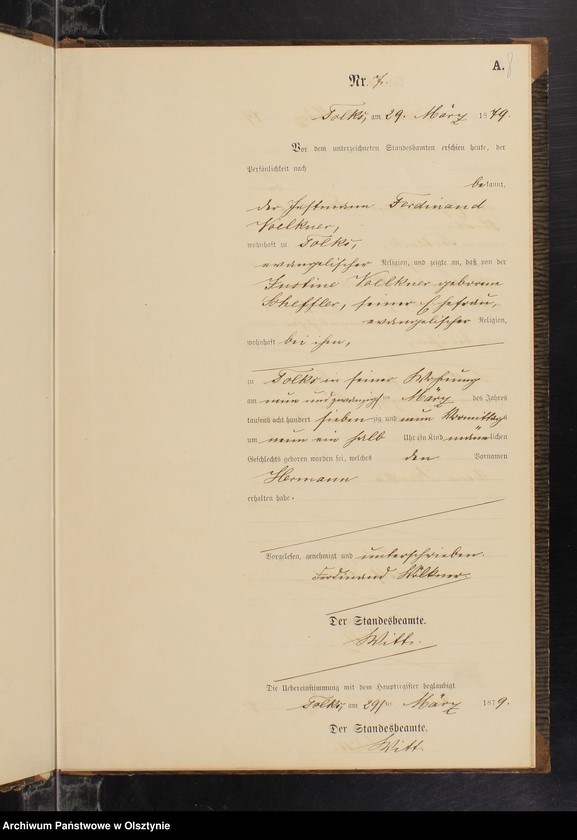 A. 8
Nr. 7.
Tolks, am 29. März 1879.
Vor dem unterzeichneten Standesbeamten erschien heute, der
Persönlichkeit nach
bekannt,
der Instmann Ferdinand
Voelkner,
wohnhaft zu Tolks,
evangelischer Religion, und zeigte an, daß von der
Justine Voelkner geborene
Scheffler, seiner Ehefrau,
evangelischer Religion,
wohnhaft bei ihm,
zu Tolks in seiner Wohnung
am neun und zwanzigsten März des Jahres
tausend acht hundert siebenzig und neun Vormittags
um neun ein halb Uhr ein Kind männlichen
Geschlechts geboren worden sei, welches den Vornamen
Hermann
erhalten habe.
Vorgelesen, genehmigt und unterschrieben.
Ferdinand Völkner.
Der Standesbeamte.
Witt.
Die Uebereinstimmung mit dem Hauptregister beglaubigt
Tolks, am 29ten März 1879.
Der Standesbeamte.
Witt.
Archiwum Państwowe w Olsztynie